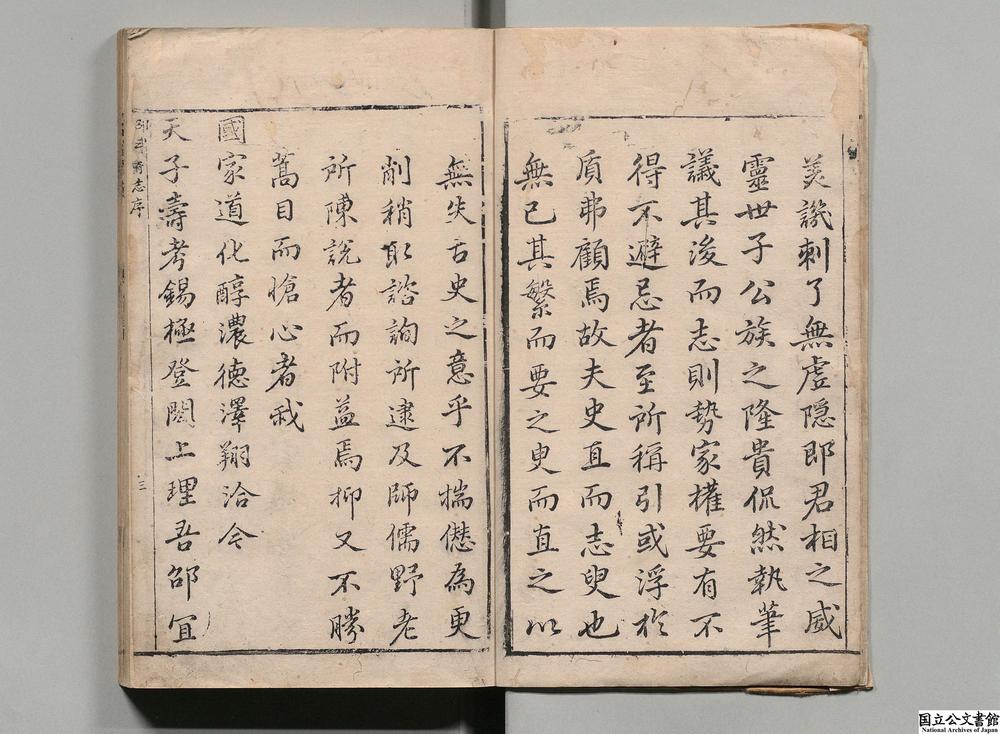 美譏刺了無虛隱即君相之威
靈世子公族之隆貴侃然執筆
議其後而志則勢家權要有不
得不避忌者至所稱引或浮於
質弗顧焉故夫史直而志諛也
無已其繁而要之史而直之以
無失古史之意乎不揣僿為更
削稍取諮詢所逮及師儒野老
所陳說者而附益焉抑又不勝
蒿目而愴心者哉
國家道化醇濃德澤翔洽今
天子壽考錫極登閎上理吾邵宜
邵武府志序
三
国立公文書館
National Archives of Japan